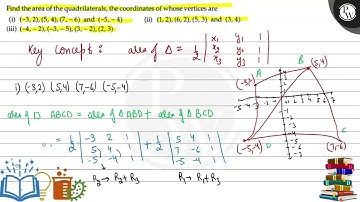 Find the area of the quadrilaterals, the coordinates of whose vertices are
(i) (−3, 2), (5, 4), (7, −6) and (−5, −4) (ii) (1, 2), (6, 2), (5, 3) and (3, 4)
(iii) (−4, −2), (−3, −5), (3, −2), (2, 3)
Key Concept: area of Δ = 1/2 | x₁ y₁ 1 |
| x₂ y₂ 1 |
| x₃ y₃ 1 |
i) (-3,2) (5,4) (7,-6) (-5,-4)
area of □ ABCD = area of Δ ABD + area of Δ BCD
= 1/2 | -3 2 1 | + 1/2 | 5 4 1 |
| 5 4 1 | | 7 -6 1 |
| -5 -4 1 | | -5 -4 1 |
R₂ → R₂ + R₃ R₁ → R₁ + R₃
A
B
(5,4)
C
(7,-6)
D
(-5,-4)